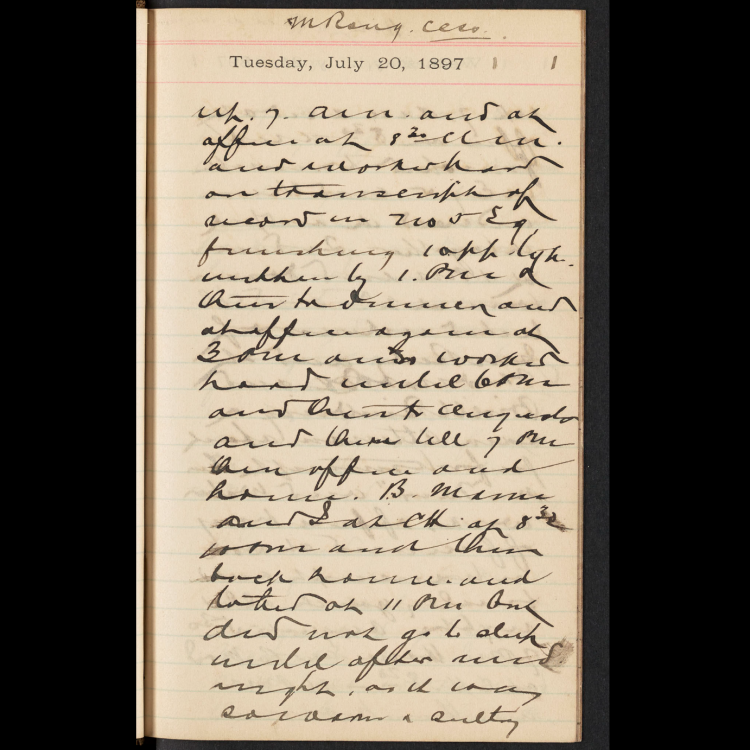 Tuesday, July 20, 1897
up 7. am and at
office at 8 30 am.
and worked hard
on transcript of
record in No 5 Eq
finishing
written by 1. PM &
then to dinner and
at office again at
3 PM and worked
hard until 6 PM
and then to
and there till 7 PM
then office and
home. B. Mama
and I at CH 8 30
and then
back home. and
at 11 PM but
did not go to sleep
until after mid
night, as it was
so warm & sultry